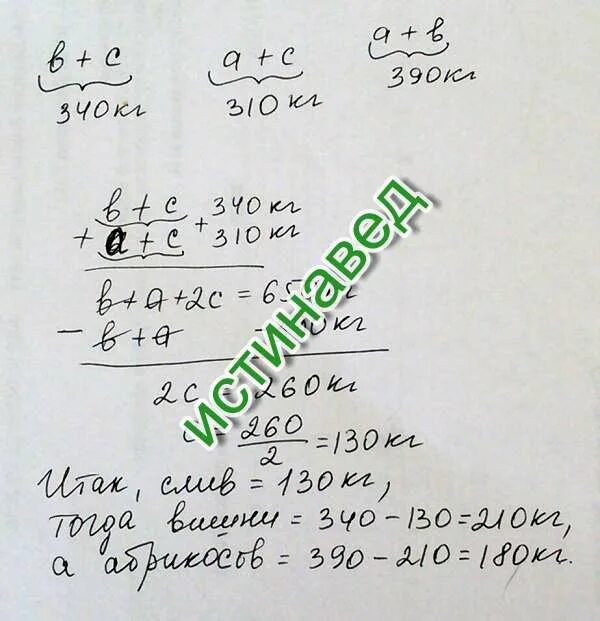 в + с а + с а + в
340кг 310кг 390кг
в + с + 340кг
+ а + с 310кг
в + а + 2с = 65
− в + а 0кг
2с = 260кг
= 260/2 = 130кг
Итак, слив = 130кг,
тогда вишни = 340 − 130 = 210кг,
а абрикосов = 390 − 210 = 180кг.
истинавед